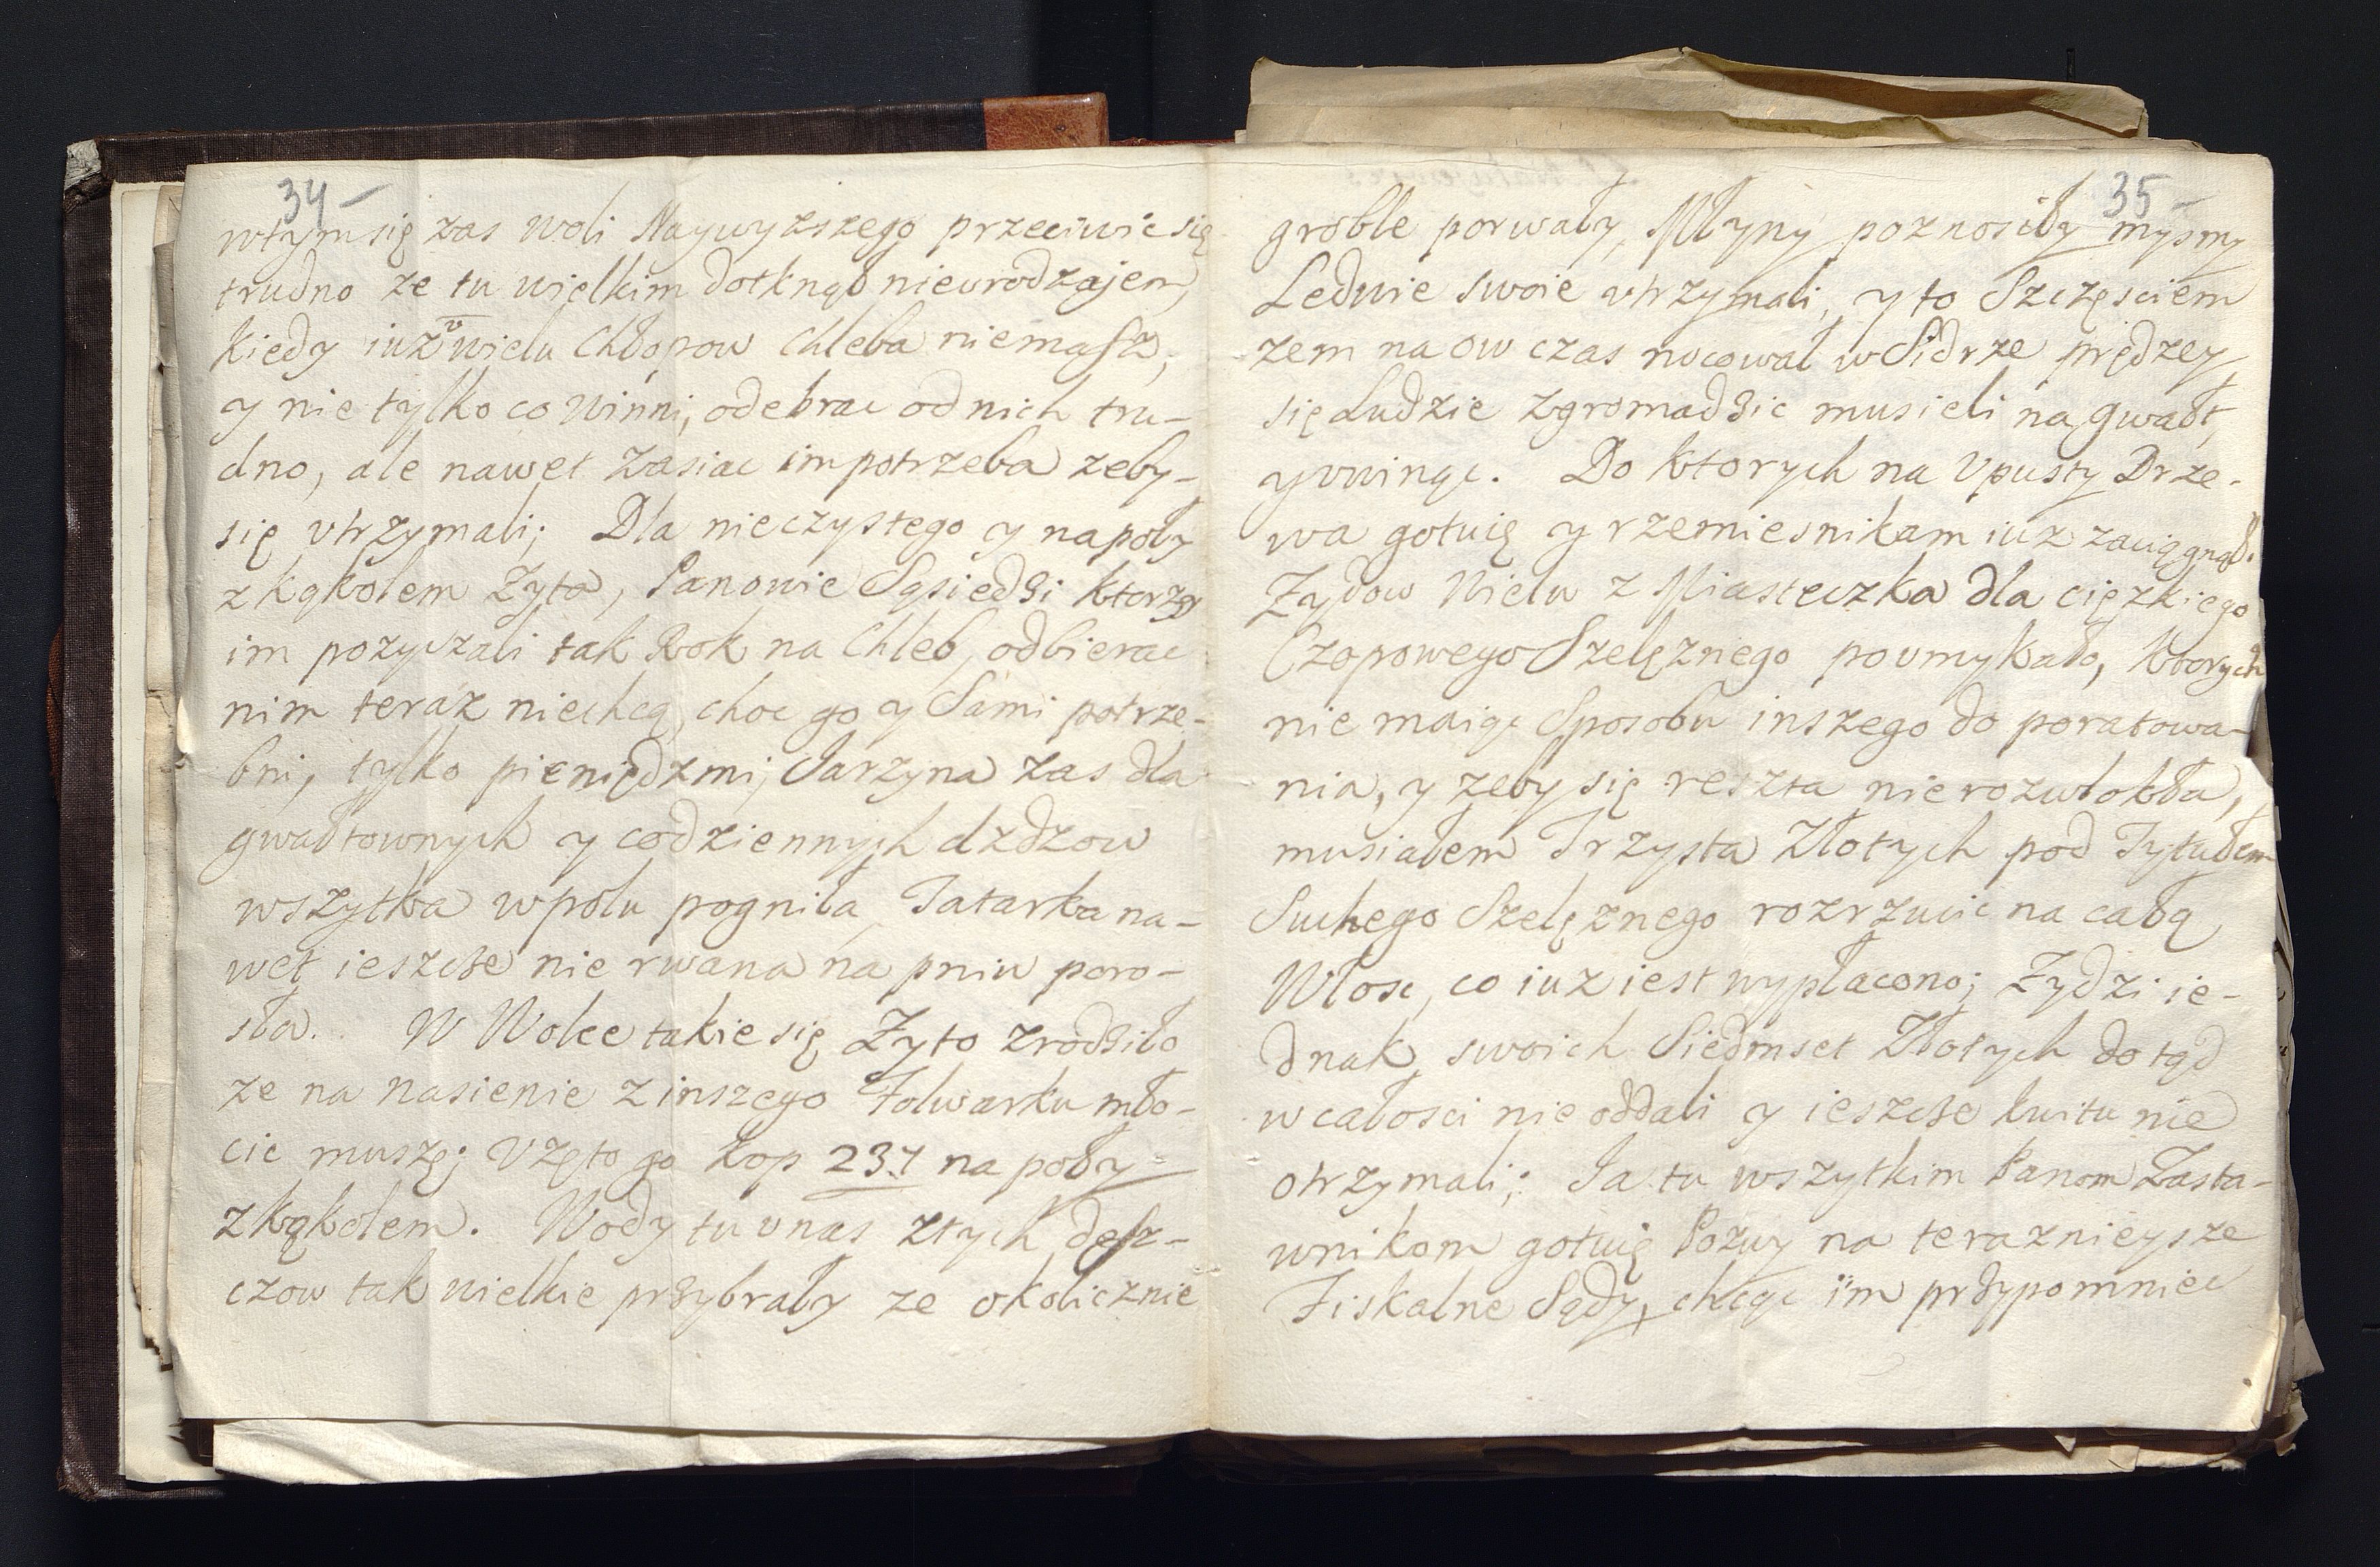 34 –
wtym się zas woli Naywyzszego przeciwic się
trudno ze tu wielkim dotknął nieurodzajem,
kiedy iuz u wielu Chłopow Chleba niemasz,
y nie tylko co winni, odebrac od nich tru-
dno, ale nawet zasiac im potrzeba zeby-
się vtrzymali; Dla nieczystego y napoły
z kąkolem Zyta, Panowie Sąsiedzi ktorzy
im pozyczali tak Rok na Chleb, odbierac
nim teraz niechcą, choc go y Sami potrze-
bni, tylko pieniędzmi; Jarzyna zas dla
gwałtownych y codziennych dzdzow
wszytka w polu pogniła, Tatarka na-
wet ieszcze nie rwana na pniu poro-
sła. W Wolce takie się Zyto zrodziło
ze na nasienie z inszego Folwarku mło-
cic muszę; Vzęto go kop 237 na poły
z kąkolem. Wody tu v nas z tych desz-
czow tak wielkie przybrały ze okolicznie
35 –
groble porwały, Młyny poznosiły mysmy
Ledwie swoie vtrzymali, y to Szczęsciem
zem na ow czas nocował w Sidrze prędzey
się Ludzie zgromadzic musieli na gwałt,
y vwinąc. Do ktorych na Vpusty Drze-
wa gotuię y rzemiesnikam iuz zaciągnął.
Zydow Wielu z Miasteczka dla cięzkiego
Czopowego Szelęznego poumykało, ktorych
nie maiąc Sposobu inszego do poratowa-
nia, y zeby się reszta nie rozwlokła,
musiałem Trzysta Złotych pod Tytułem
Suchego Szelęznego rozrzucic na całą
Włosc, co iuz iest wypłacono; Zydzi ie-
dnak swoich Siedmset Złotych do tąd
w całosci nie oddali y ieszcze kwitu nie
otrzymali; Ja tu wszytkim Panom Zasta-
wnikom gotuię Pozwy na teraznieysze
Fiskalne Sądy, chcąc im przypomniec